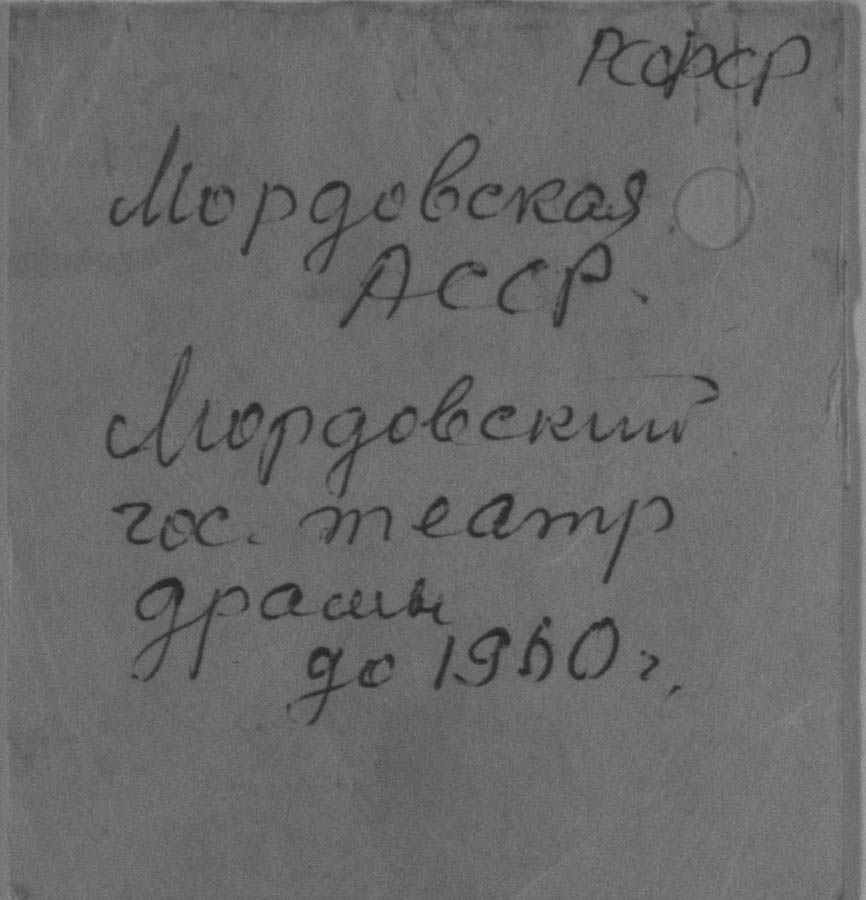 РСФСР
Мордовская
АССР.
Мордовский
гос. театр
драмы
до г.